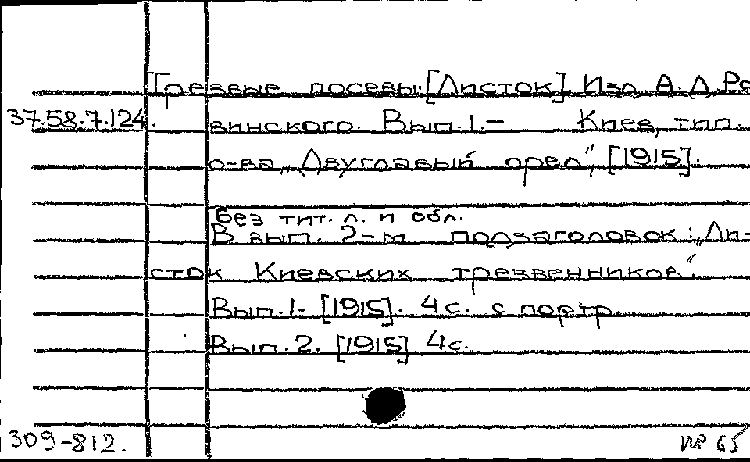 Трезвые посевы. [Листок]. Изд. А. Д. Ро
37.58.7.124.
винского. Вып. 1.– Киев, тип.
о-ва „Двуглавый орел", [1915].
Без тит. л. и обл.
В вып. 2-м подзаголовок: „Ли-
сток Киевских трезвенников".
Вып. 1. [1915]. 4 с. с портр.
Вып. 2. [1915] 4 с.
309-812.
№ 65